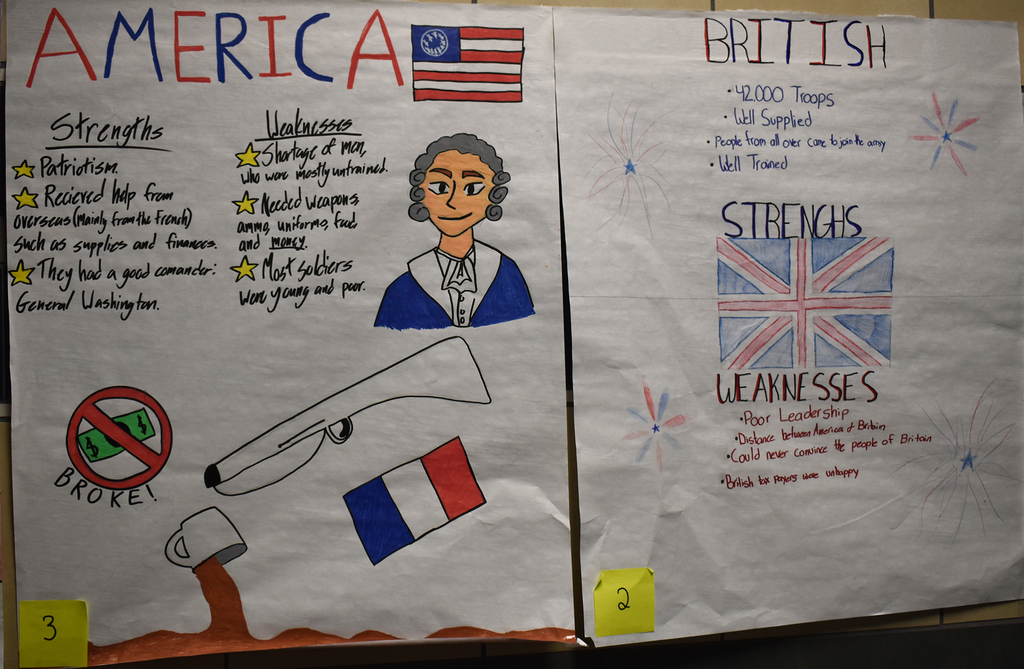 AMERICA
Strengths
Patriotism.
Recieved help from
overseas (Mainly from the French)
such as supplies and finances.
They had a good comander:
General Washington.
Weaknesses
Shortage of men,
who were mostly untrained.
Needed weapons,
ammo, uniforms, food
and money.
Most soldiers
were young and poor.
$ $
BROKE!
3
BRITISH
• 42.000 Troops
• Well Supplied
• People from all over came to join the army
• Well Trained
STRENGHS
WEAKNESSES
• Poor Leadership
• Distance between America & Britain
• Could never convince the people of Britain
• British tax payers were unhappy
2